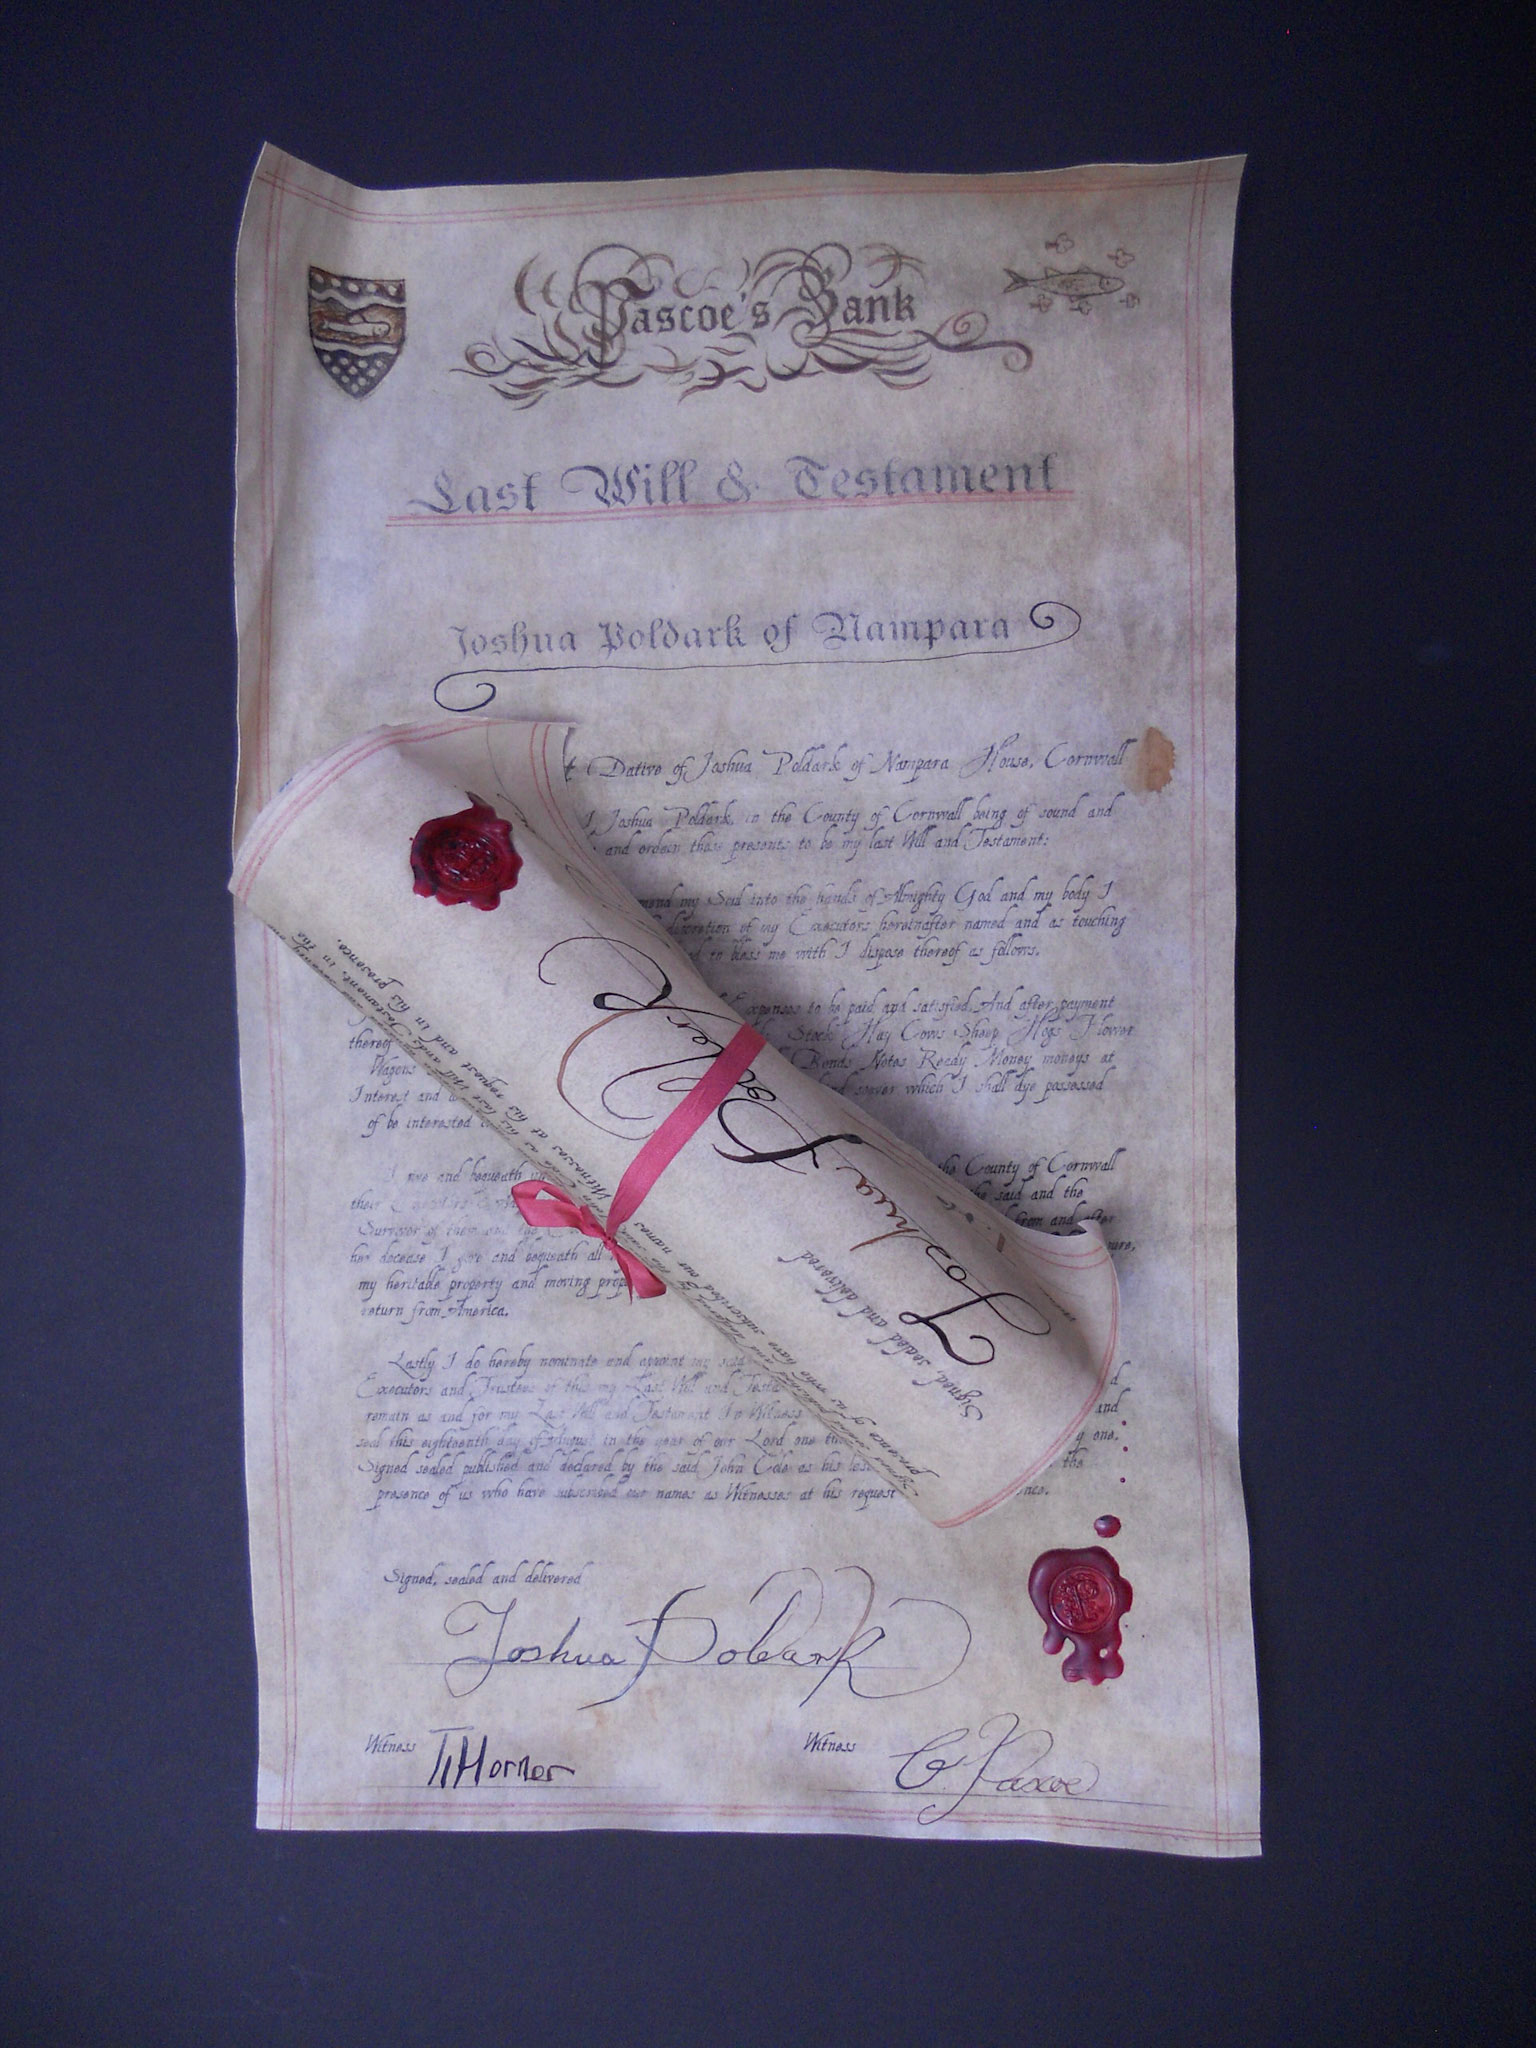 Pascoe's Bank
Last Will & Testament
Joshua Poldark of Nampara
Dative of Joshua Poldark of Nampara House, Cornwall
I Joshua Poldark, in the County of Cornwall being of sound and
and ordein these presents to be my last Will and Testament:
mend my Soul into the hands of Almighty God and my body I
discretion of my Executors hereinafter named and as touching
ed to bless me with I dispose thereof as follows.
Expenses to be paid and satisfied. And after payment
thereof Stock Hay Cows Sheep Hogs Flower
Wagons Bonds Notes Ready Money moneys at
Interest and soever which I shall dye possessed
of be interested
I give and bequeath the County of Cornwall
their he said and the
Survivor of them and from and after
her decease I give and bequeath all
my heritable property and moving prop
return from America.
Lastly I do hereby nominate and appoint my said
Executors and Trustees of this my Last Will and Testa and
remain as and for my Last Will and Testament In Witness
seal this eighteenth day of August in the year of our Lord one y one.
Signed sealed published and declared by the said John Cole as his last the
presence of us who have subscribed our names as Witnesses at his request nce.
Signed, sealed and delivered
Joshua Poldark
Witness T Horner Witness C. Pascoe
Signed, sealed and delivered
Joshua Poldark
presence of us who have subscribed our names Witnesses at his request and in his presence.